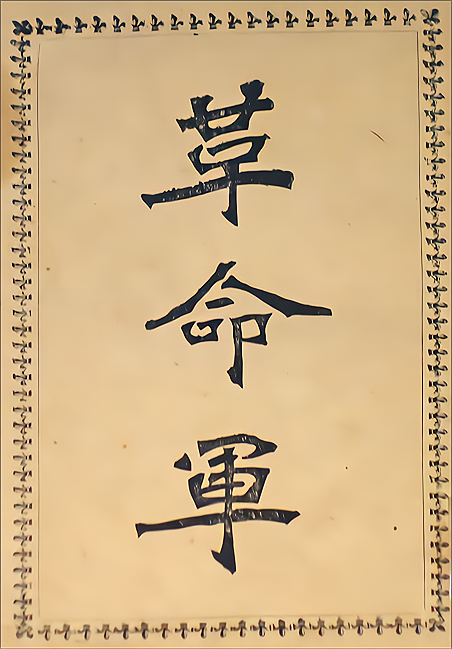 革命軍